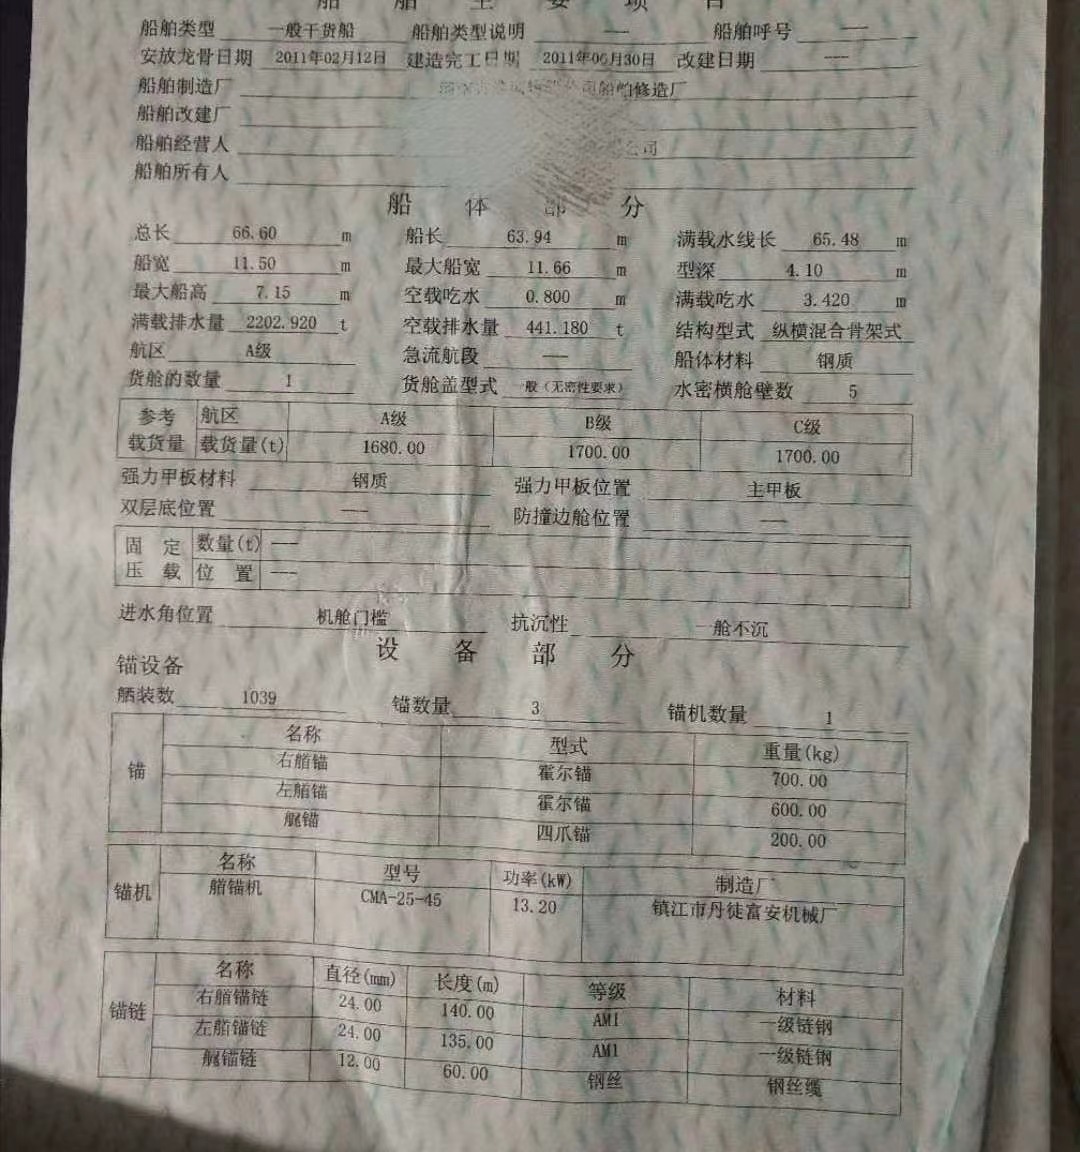 船舶主要项目
船舶类型 一般干货船 船舶类型说明 --- 船舶呼号 ---
安放龙骨日期 2011年02月12日 建造完工日期 2011年06月30日 改建日期 ---
船舶制造厂 船舶修造厂
船舶改建厂
船舶经营人 公司
船舶所有人
船体部分
总长 66.60 m 船长 63.94 m 满载水线长 65.48 m
船宽 11.50 m 最大船宽 11.66 m 型深 4.10 m
最大船高 7.15 m 空载吃水 0.800 m 满载吃水 3.420 m
满载排水量 2202.920 t 空载排水量 441.180 t 结构型式 纵横混合骨架式
航区 A级 急流航段 --- 船体材料 钢质
货舱的数量 1 货舱盖型式 一般(无密性要求) 水密横舱壁数 5
参考 航区 A级 B级 C级
载货量 载货量(t) 1680.00 1700.00 1700.00
强力甲板材料 钢质 强力甲板位置 主甲板
双层底位置 --- 防撞边舱位置 ---
固定 数量(t) ---
压载 位置 ---
进水角位置 机舱门槛 抗沉性 一舱不沉
设备部分
锚设备
舾装数 1039 锚数量 3 锚机数量 1
锚 名称 型式 重量(kg)
右艏锚 霍尔锚 700.00
左艏锚 霍尔锚 600.00
艉锚 四爪锚 200.00
锚机 名称 型号 功率(kW) 制造厂
艏锚机 CMA-25-45 13.20 镇江市丹徒富安机械厂
锚链 名称 直径(mm) 长度(m) 等级 材料
右艏锚链 24.00 140.00 AM1 一级链钢
左艏锚链 24.00 135.00 AM1 一级链钢
艉锚链 12.00 60.00 钢丝 钢丝缆